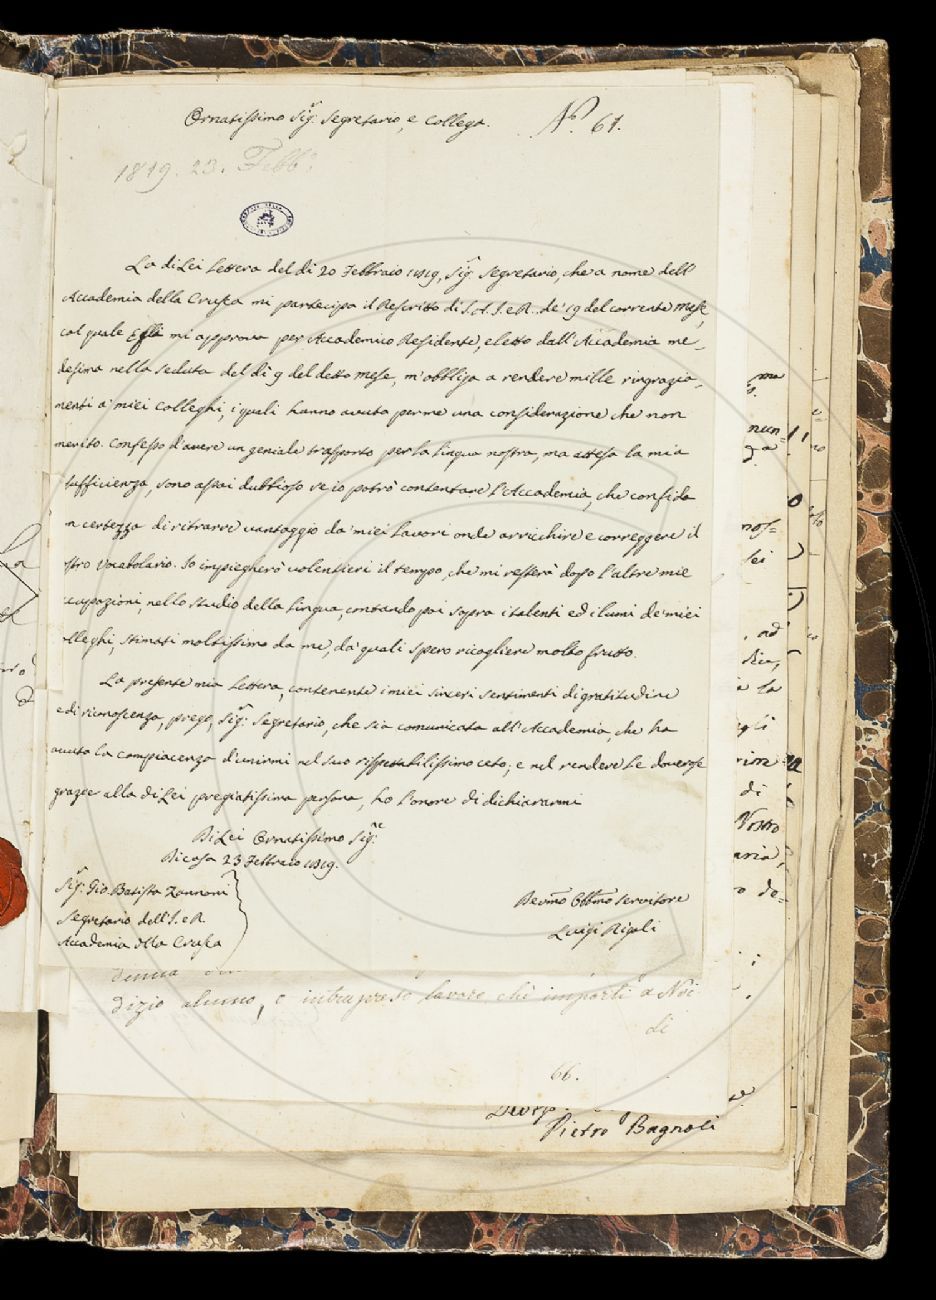 Ornatissimo Sig.r Segretario, e Collega.
N.o 61.
1819. 23. Febb.o
La di Lei Lettera del dì 20 Febbraio 1819, Sig.r Segretario, che a nome dell'
Accademia della Crusca mi partecipa il Rescritto di S.A.I. e R. de' 19 del corrente Mese,
col quale Egli mi approva per Accademico Residente, eletto dall'Accademia me-
desima nella Seduta del dì 9 del detto Mese, m'obbliga a rendere mille ringrazia-
menti a' miei Colleghi, i quali hanno avuta per me una considerazione che non
merito. Confesso d'avere un geniale trasporto per la lingua nostra, ma attesa la mia
sufficienza, sono assai dubbioso se io potrò contentare l'Accademia, che confida
n certezza di ritrarre vantaggio da' miei Lavori onde arricchire e correggere il
stro Vocabolario. Io impiegherò volentieri il tempo, che mi resterà dopo l'altre mie
ccupazioni, nello studio della Lingua, contando poi sopra i talenti ed i lumi de' miei
olleghi, stimati moltissimo da me, da' quali spero ricogliere molto frutto.
La presente mia Lettera, contenente i miei sinceri sentimenti di gratitudine
e di riconoscenza, prego, Sig.r Segretario, che sia comunicata all'Accademia, che ha
avuto la compiacenza d'unirmi nel suo rispettabilissimo ceto; e nel rendere le doverose
grazie alla di Lei pregiatissima persona, ho l'onore di dichiararmi
Di Lei Ornatissimo Sig.re
Di casa 23 Febbraio 1819.
Sig.r Gio. Batista Zannoni
Segretario dell'I. e R.
Accademia della Crusca
Devmo Obbmo Servitore
Luigi Rigoli
dizio alcuno, o intrapreso lavoro chè importi a Noi
di
66.
Pietro Bagnoli
nun-
mos-
sei
ad
la
di
Nostro
aria,
de-